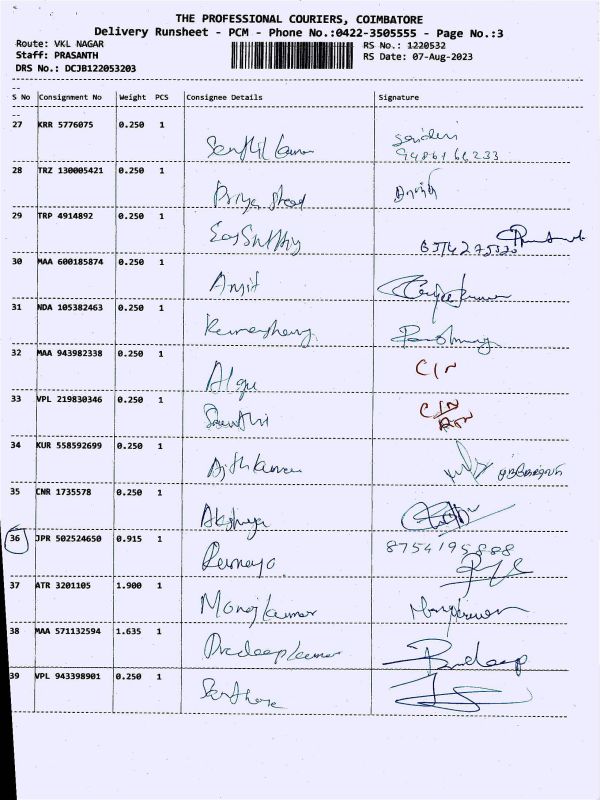 THE PROFESSIONAL COURIERS, COIMBATORE
Delivery Runsheet - PCM - Phone No.:0422-3505555 - Page No.:3
Route: VKL NAGAR RS No.: 1220532
Staff: PRASANTH RS Date: 07-Aug-2023
DRS No.: DCJB122053203
S No Consignment No Weight PCS Consignee Details Signature
27 KRR 5776075 0.250 1
Senthil kumar
28 TRZ 130005421 0.250 1
Priya
29 TRP 4914892 0.250 1
30 MAA 600185874 0.250 1
Anjit
31 NDA 105382463 0.250 1
32 MAA 943982338 0.250 1
C/N
33 VPL 219830346 0.250 1
C/N
34 KUR 558592699 0.250 1
Ajithkumar
35 CNR 1735578 0.250 1
Akshaya
36 JPR 502524650 0.915 1 8754195888
37 ATR 3201105 1.900 1
Manojkumar
38 MAA 571132594 1.635 1
Pradeepkumar Pradeep
39 VPL 943398901 0.250 1